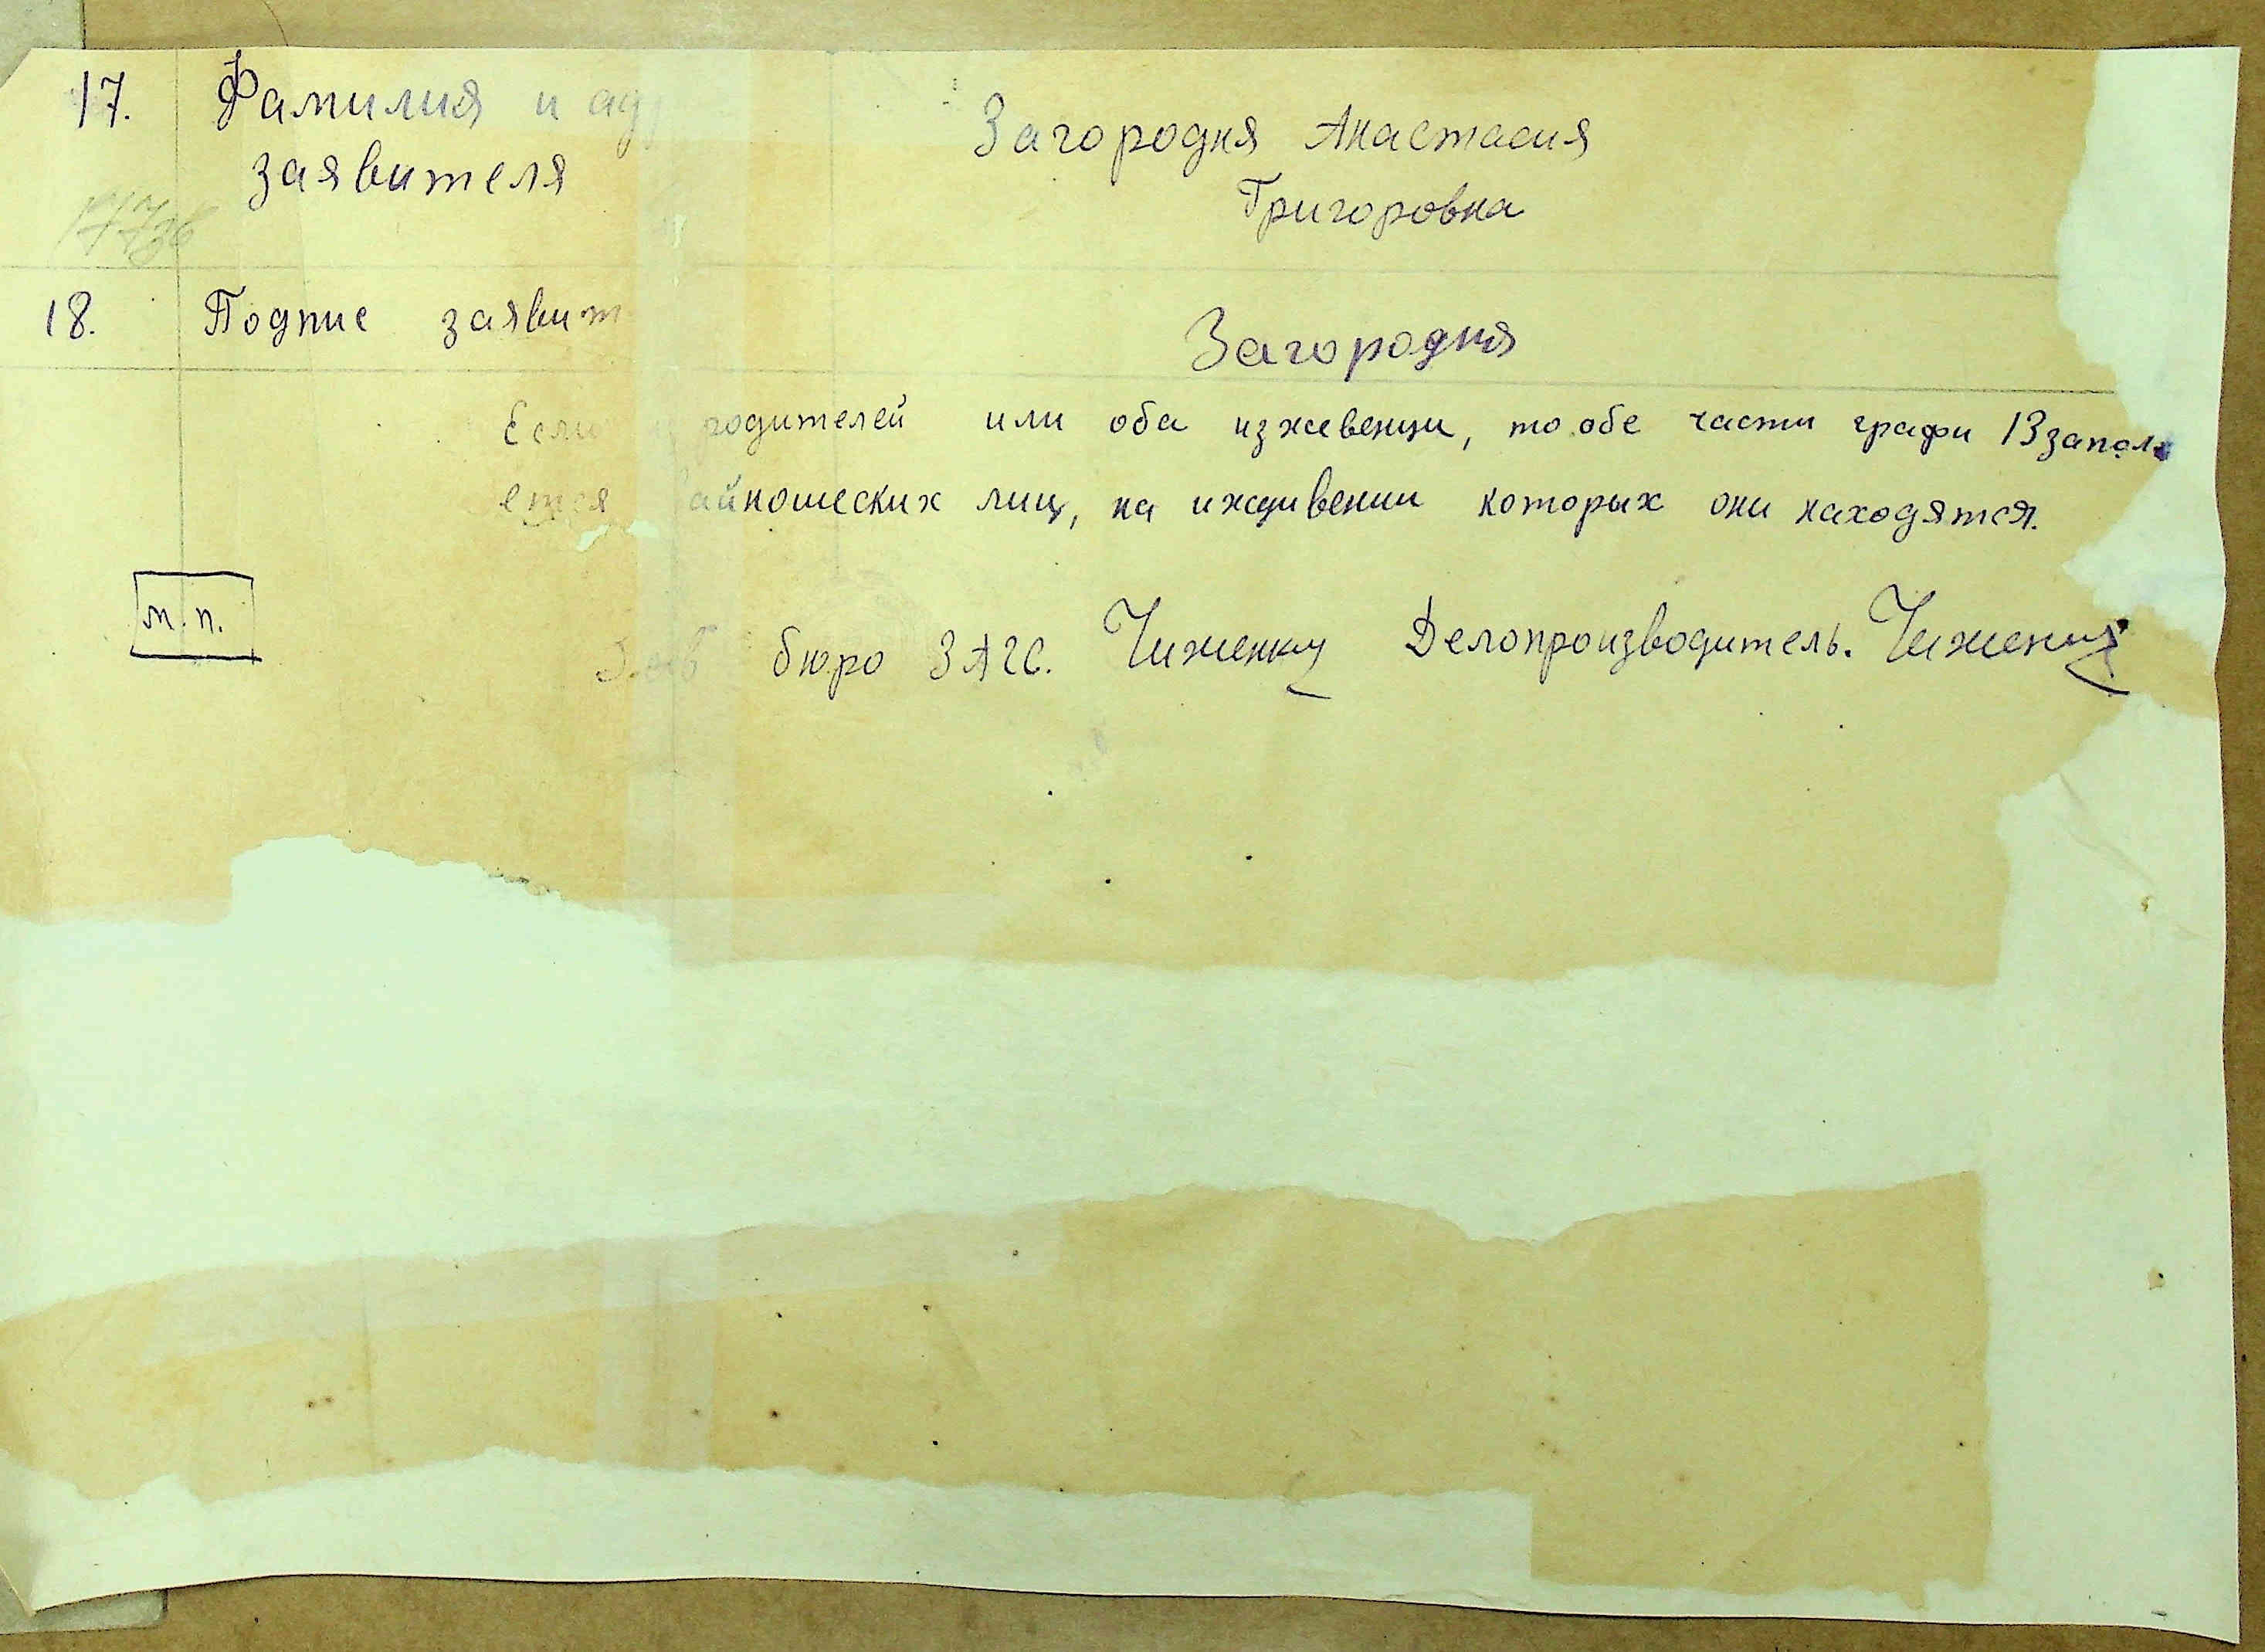 17. Фамилия и ад Загородня Анастасия
заявителя Григоровна
18. Подпис заявит Загородня
Если родителей или оба изживенци, то обе части графи 13 запол
ется лиц, на иждивении которых они находятся.
м. п.
бюро ЗАГС. Чиженку Делопроизводитель. Чиженку